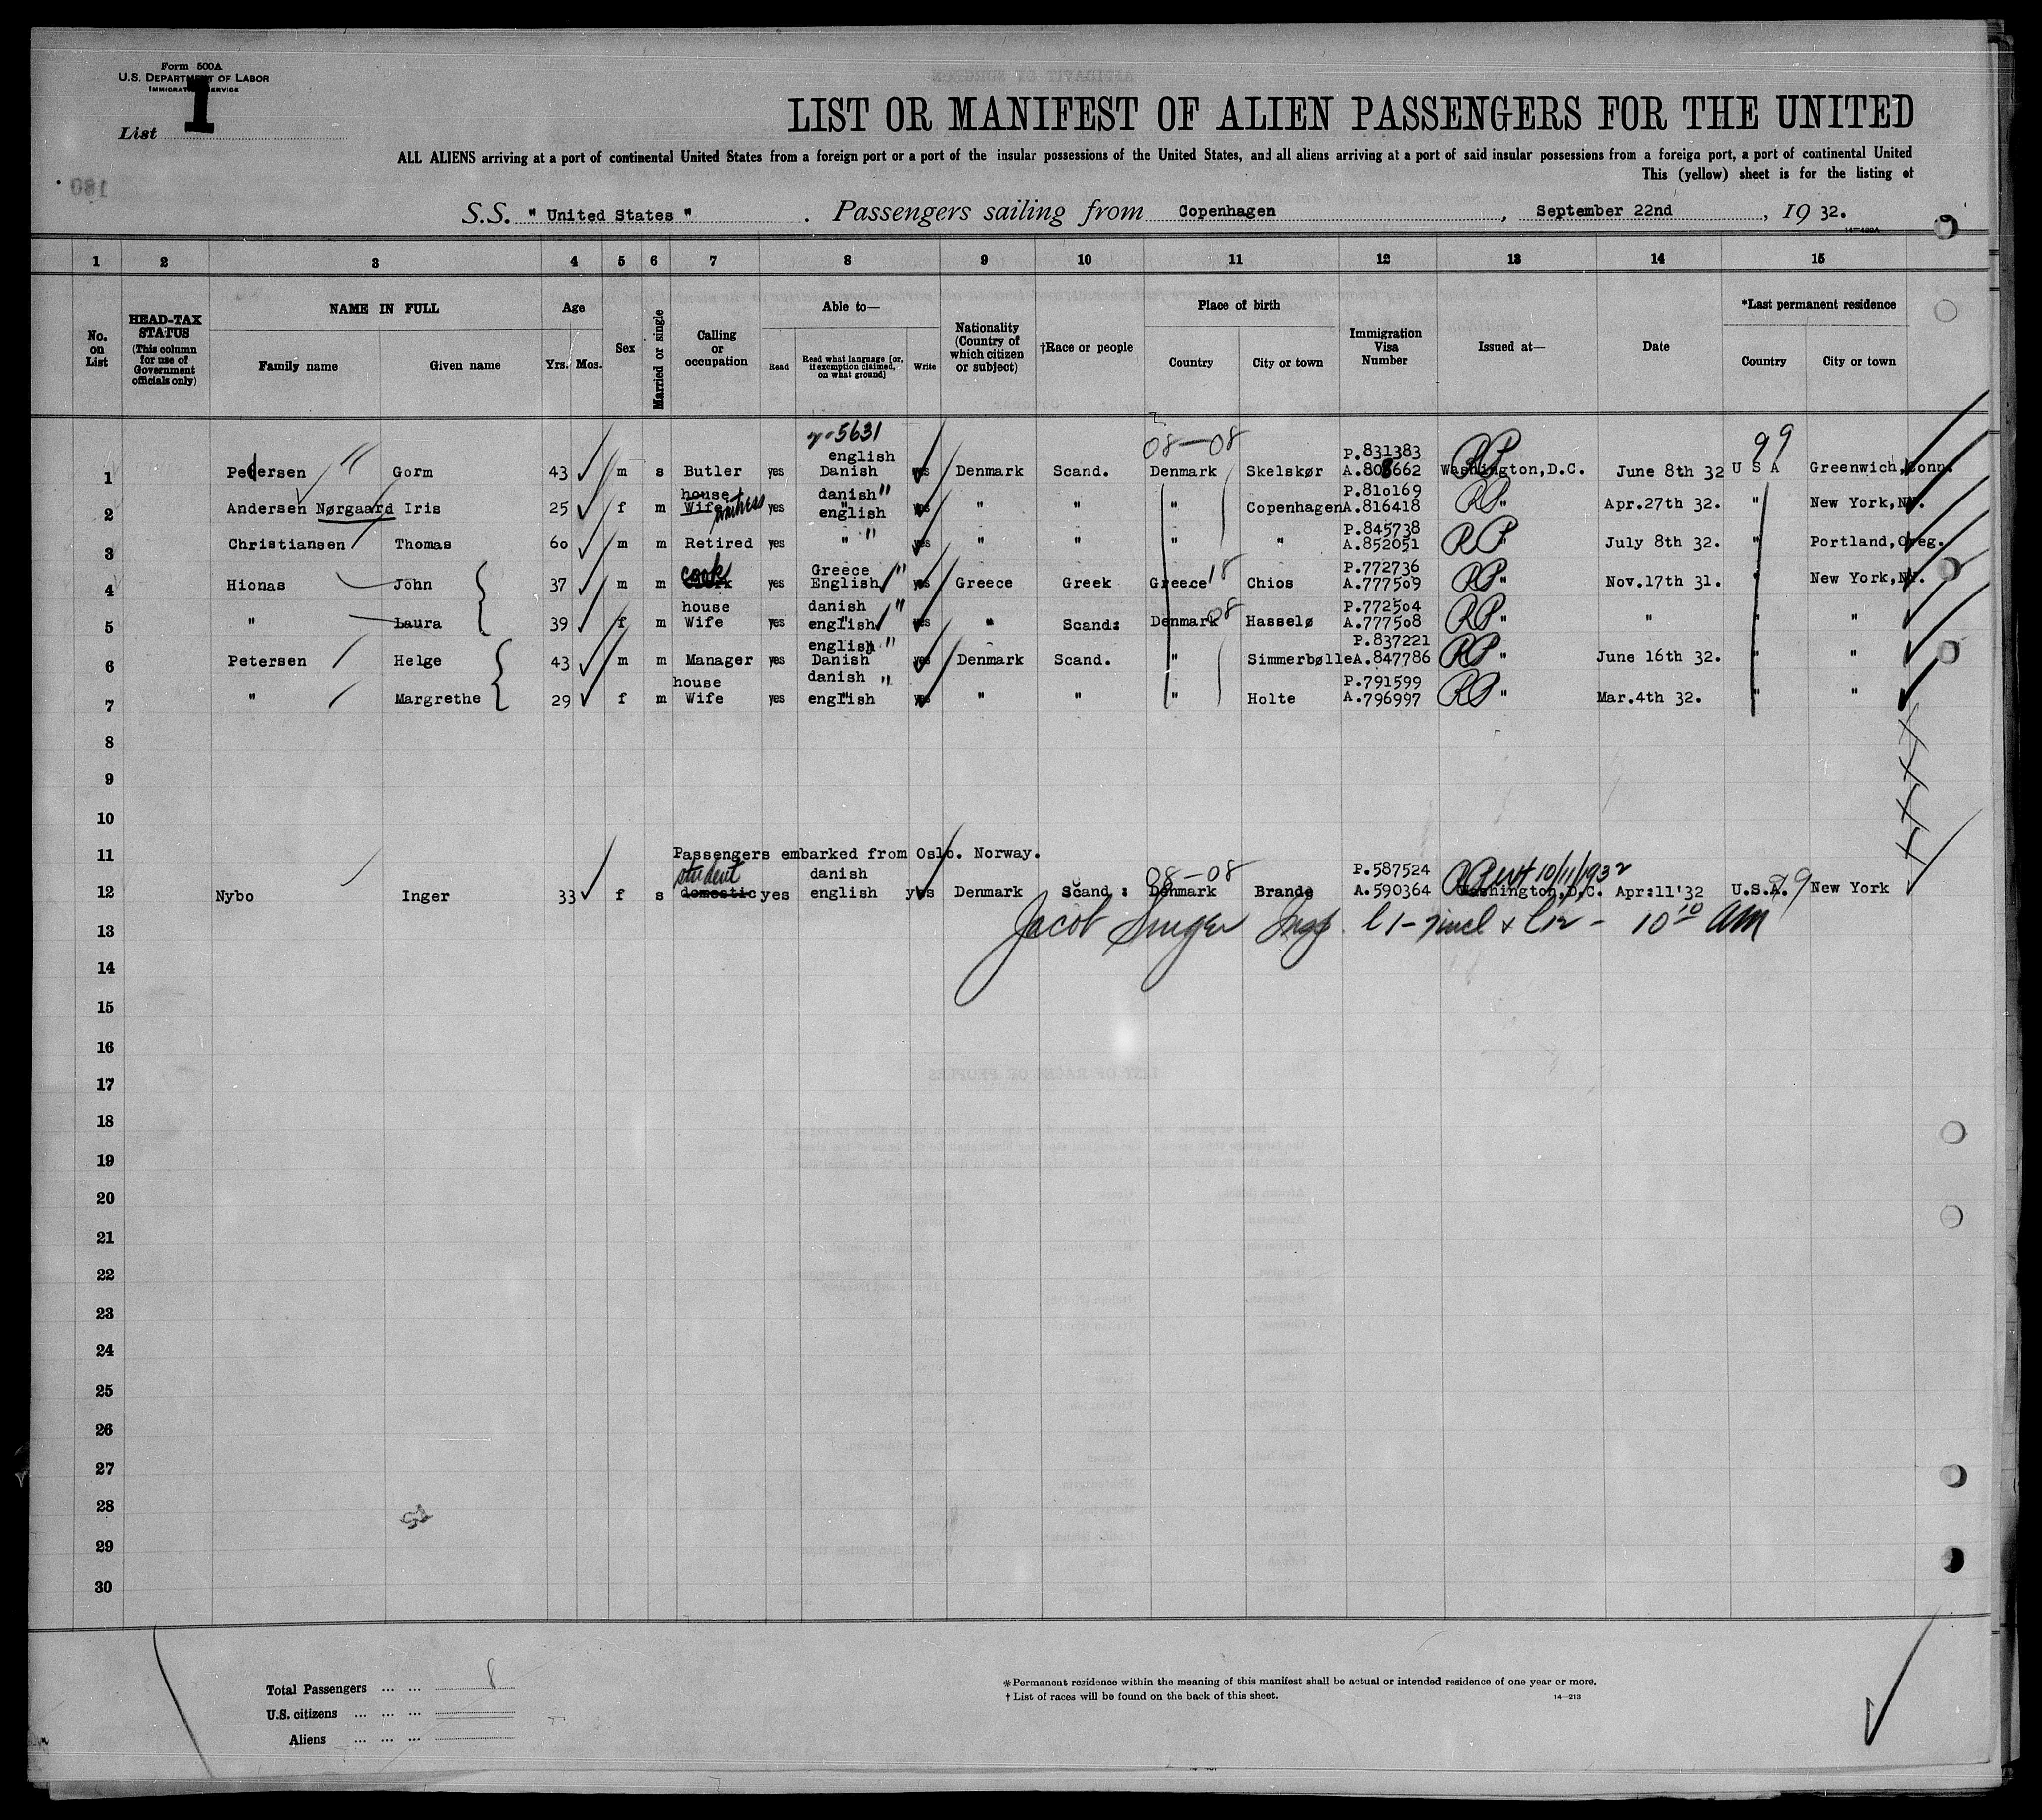 Form 500A
U.S. DEPARTMENT OF LABOR
IMMIGRATION SERVICE
List 1
LIST OR MANIFEST OF ALIEN PASSENGERS FOR THE UNITED
ALL ALIENS arriving at a port of continental United States from a foreign port or a port of the insular possessions of the United States, and all aliens arriving at a port of said insular possessions from a foreign port, a port of continental United
This (yellow) sheet is for the listing of
180
S.S. " United States " . Passengers sailing from Copenhagen , September 22nd , 19 32.
1 2 3 4 5 6 7 8 9 10 11 12 13 14 15
No. on List
HEAD-TAX STATUS (This column for use of Government officials only)
NAME IN FULL Family name Given name
Age Yrs. Mos.
Sex
Married or single
Calling or occupation
Able to— Read Read what language [or, if exemption claimed, on what ground] Write
Nationality (Country of which citizen or subject)
†Race or people
Place of birth Country City or town
Immigration Visa Number
Issued at—
Date
*Last permanent residence Country City or town
5631 08—08 99
english P.831383 RP
1 Pedersen Gorm 43 m s Butler yes Danish yes Denmark Scand. Denmark Skelskør A.808662 Washington,D.C. June 8th 32 U S A Greenwich,Conn.
house danish " P.810169 RP
2 Andersen Nørgaard Iris 25 f m Wife waitress yes english yes " " " Copenhagen A.816418 " Apr.27th 32. " New York,NY.
P.845738
3 Christiansen Thomas 60 m m Retired yes " " yes " " " " A.852051 RP " July 8th 32. " Portland,Oreg.
cook Greece " 18 P.772736
4 Hionas John 37 m m yes English yes Greece Greek Greece Chios A.777509 RP " Nov.17th 31. " New York,NY.
house danish " 08 P.772504
5 " Laura 39 f m Wife yes english yes " Scand: Denmark Hasselø A.777508 RP " " " "
english " P.837221
6 Petersen Helge 43 m m Manager yes Danish yes Denmark Scand. " Simmerbølle A.847786 RP " June 16th 32. " "
house danish " P.791599
7 " Margrethe 29 f m Wife yes english yes " " " Holte A.796997 RP " Mar.4th 32. " "
8
9
10
11 Passengers embarked from Oslo. Norway.
student danish 08—08 P.587524 RP ext 10/11/1932
12 Nybo Inger 33 f s domestic yes english yes Denmark Scand : Denmark Brande A.590364 Washington,D,C. Apr:11'32 U.S.A. 99 New York
13 Jacob Singer Insp. l 1 - 7 incl + l 12 - 10 10 AM
14
15
16
17
18
19
20
21
22
23
24
25
26
27
28
29
30
Total Passengers ... ... 8
U.S. citizens ... ... ...
Aliens ... ... ...
*Permanent residence within the meaning of this manifest shall be actual or intended residence of one year or more.
† List of races will be found on the back of this sheet. 14—213